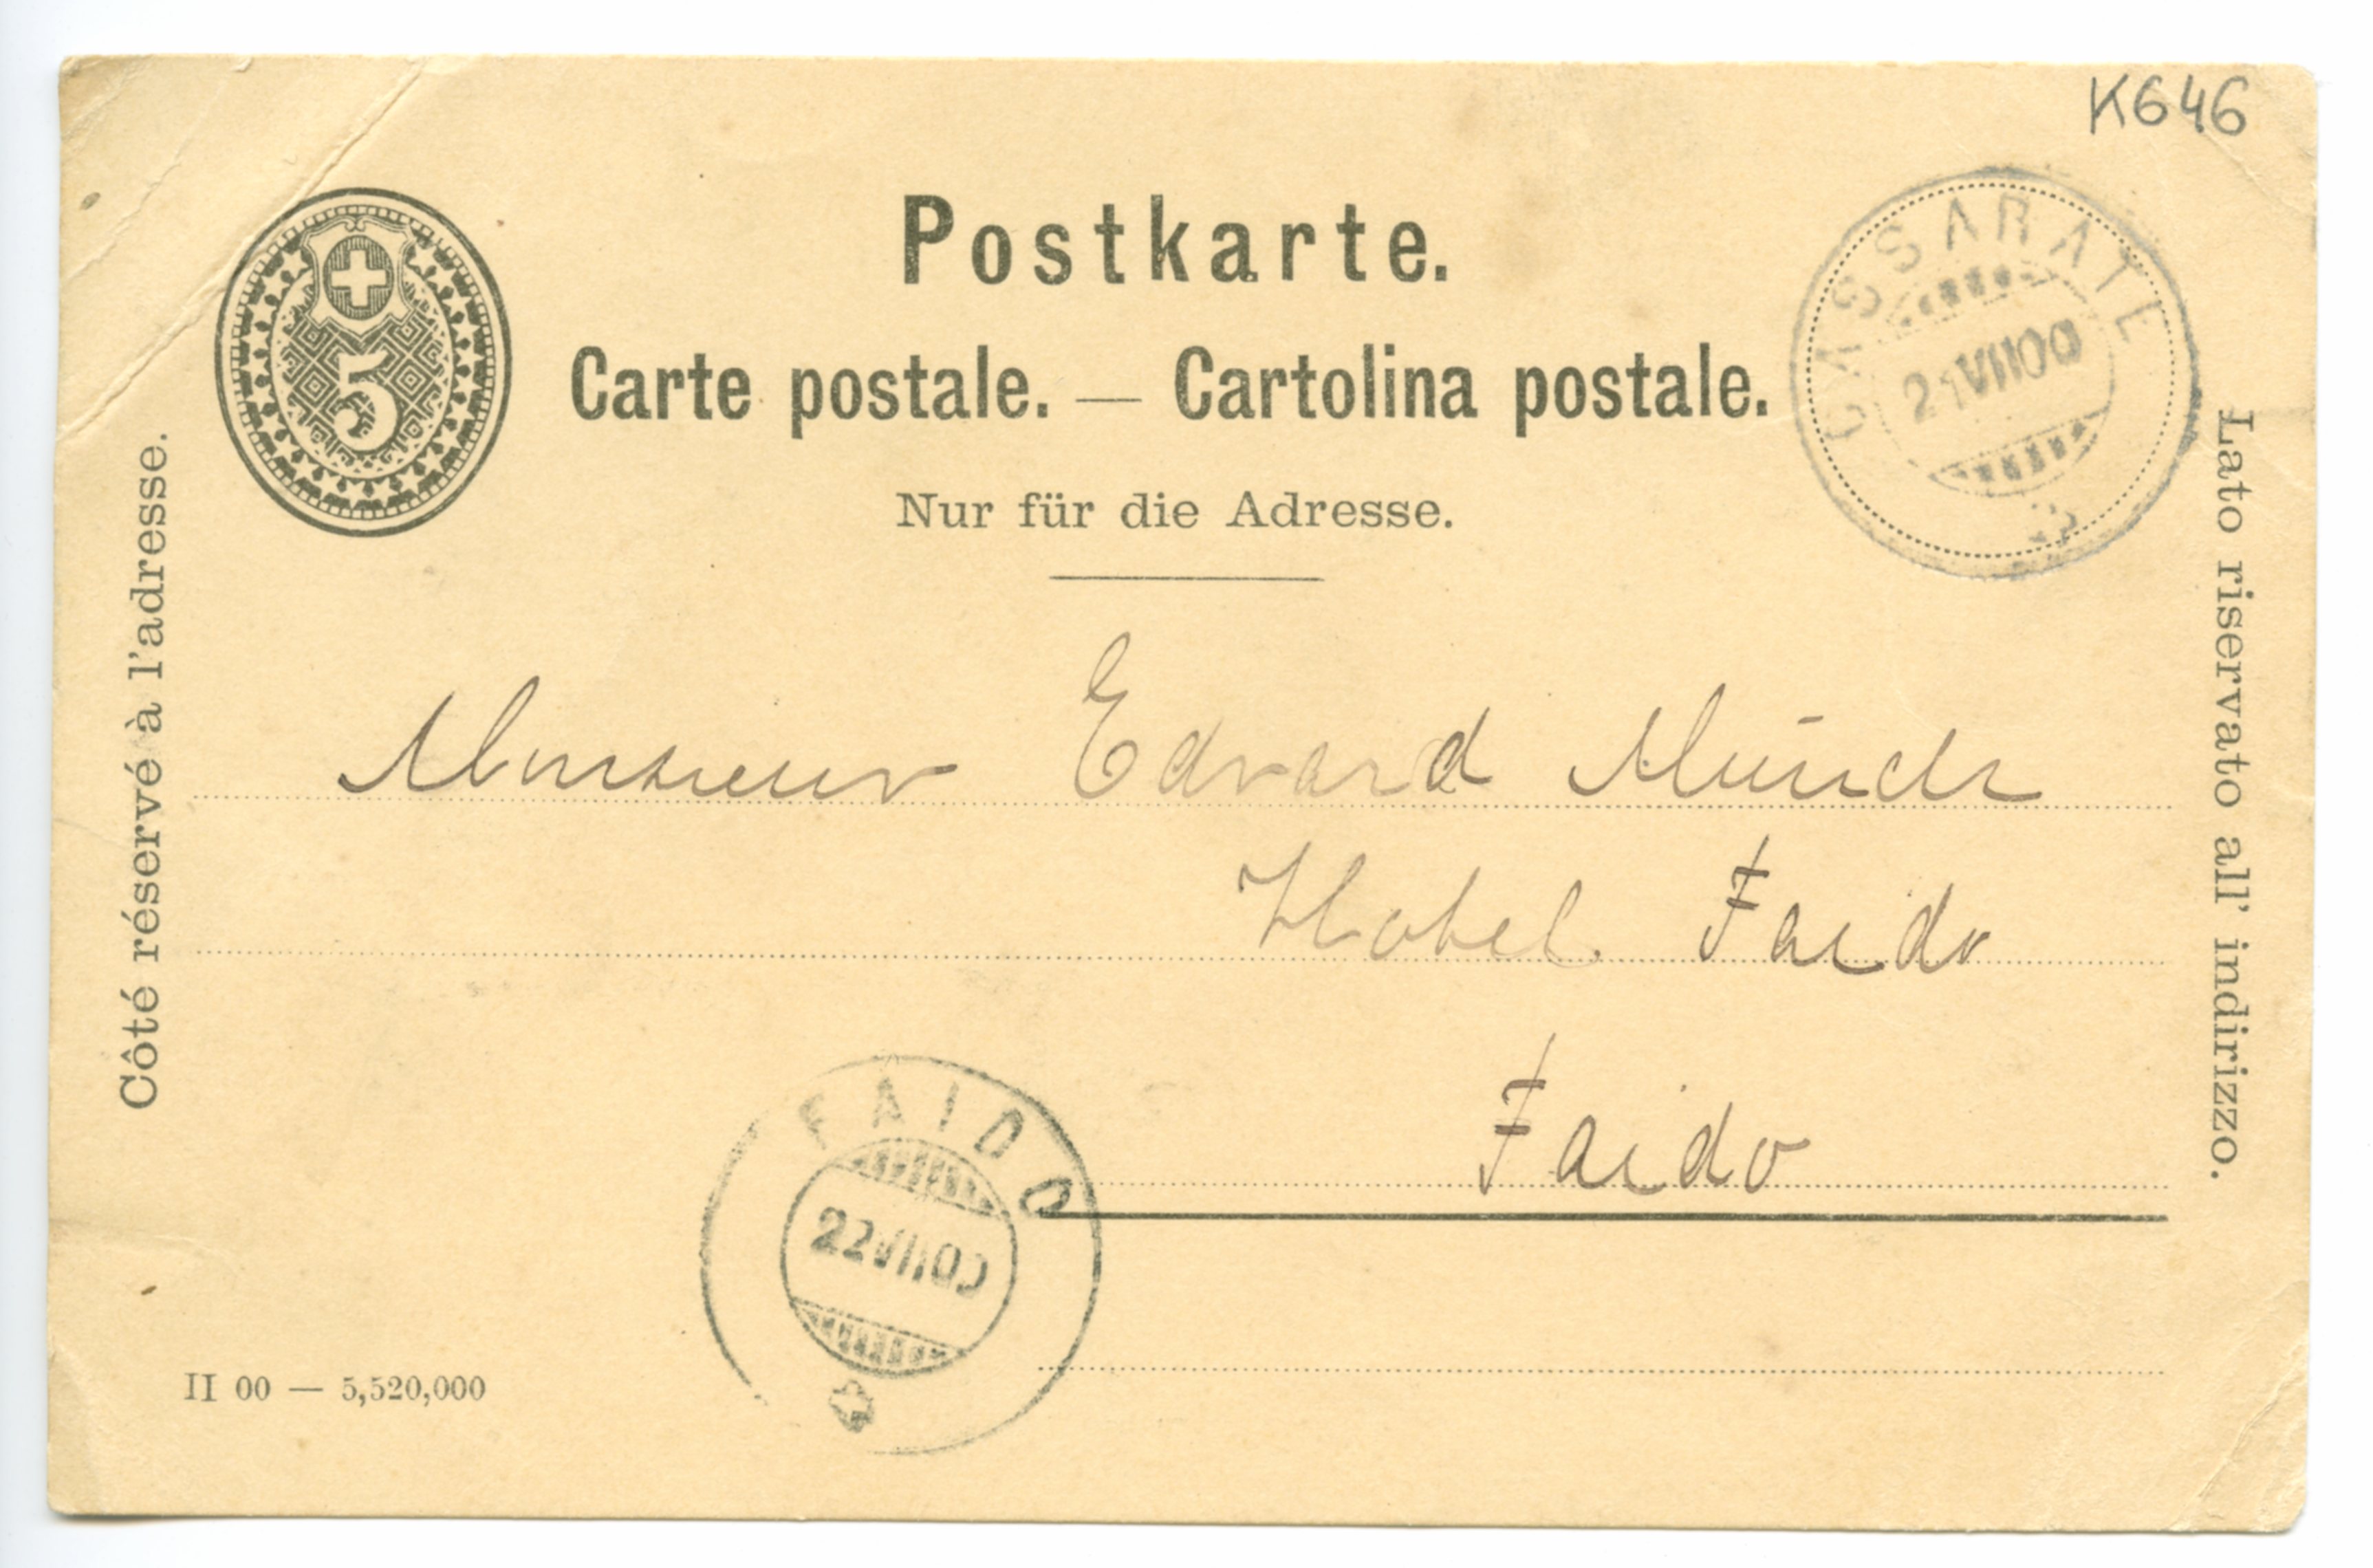 K646
Postkarte.
Carte postale. — Cartolina postale.
Nur für die Adresse.
5
CASSARATE
21 VII 00
Côté réservé à l'adresse.
Lato riservato all' indirizzo.
Monsieur Edvard Münch
Hotel Faido
Faido
FAIDO
22 VII 00
II 00 — 5,520,000